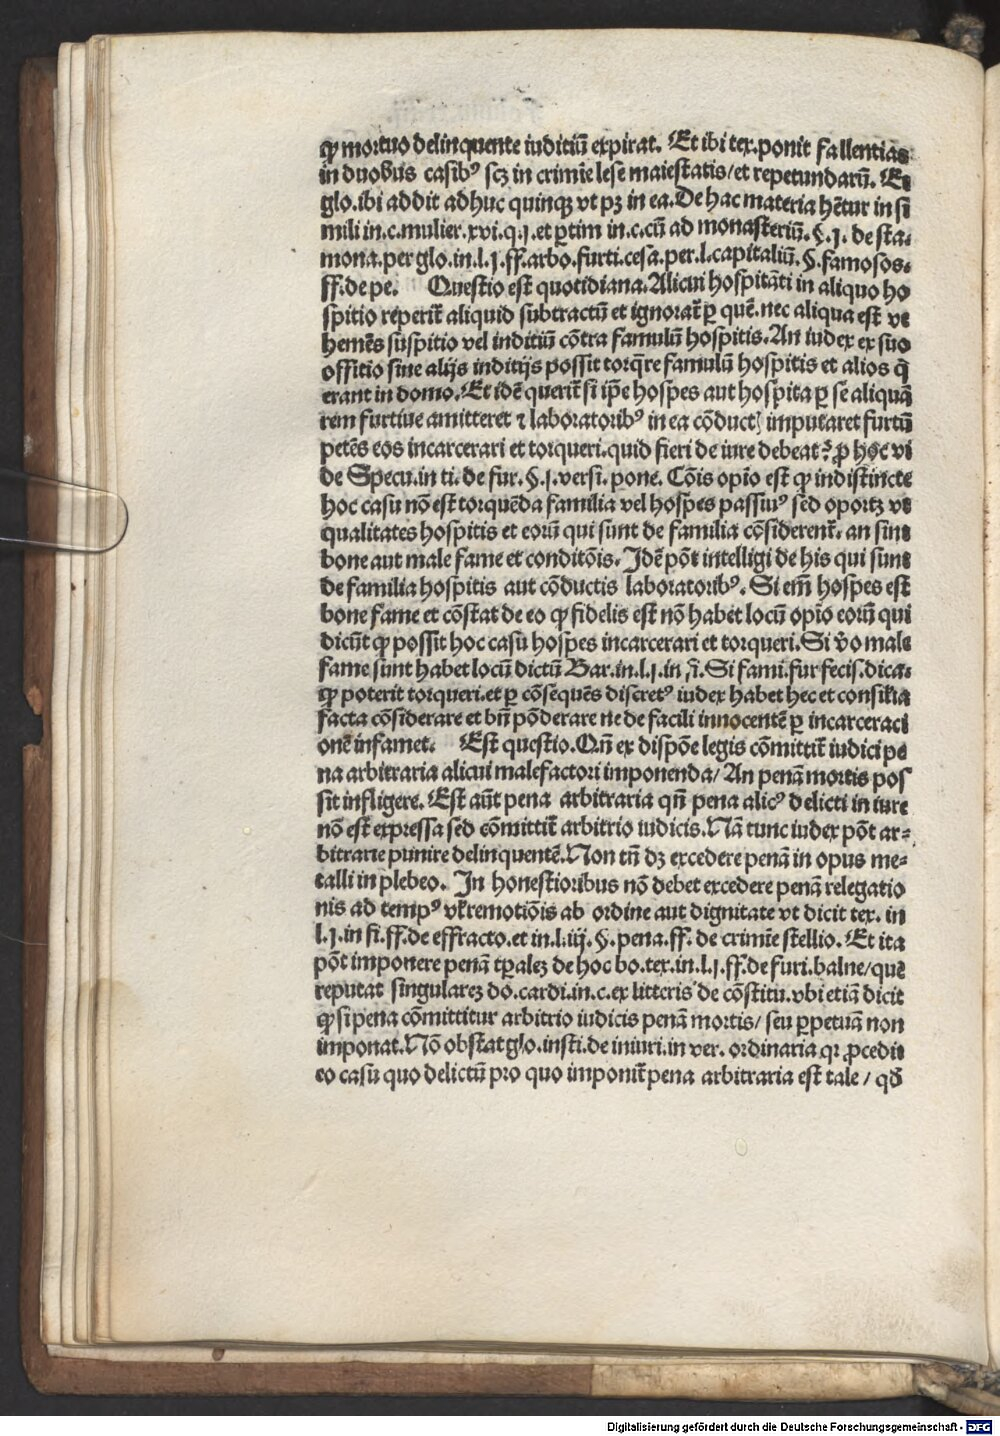 ꝙ mortuo delinquente iuditiū expirat. Et ibi tex. ponit fallentias
in duobus casibꝰ scꝫ in crimīe lese maiestatis/et repetundarū. Et
glo. ibi addit adhuc quinqꝫ vt pꝫ in ea. De hac materia hētur in si
mili in. c. mulier. xvi. q. j. et ꝑtim in. c. cū ad monasteriū. §. j. de sta.
mona. per glo. in. l. j. ff. arbo. furti. cesa. per. l. capitaliū. §. famosos.
ff. de pe. Questio est quotidiana. Alicui hospitāti in aliquo ho
spitio reperit̄ aliquid subtractū et ignorat̄ ꝑ quē. nec aliqua est ve
hemēs suspitio vel inditiū cōtra famulū hospitis. An iudex ex suo
offitio sine alijs inditijs possit torq̄re famulū hospitis et alios q̄
erant in domo. Et idē querit̄ si ip̄e hospes aut hospita ꝑ se aliquā
rem furtiue amitteret ⁊ laboratoribꝰ in ea cōduct) imputaret furtū
petēs eos incarcerari et torqueri. quid fieri de iure debeat? ꝓ hoc vi
de Specu. in ti. de fur. §. j. versi. pone. Cōis opīo est ꝙ indistincte
hoc casu nō est torquēda familia vel hospes passiuꝰ sed oportꝫ vt
qualitates hospitis et eorū qui sunt de familia cōsiderent̄. an sint
bone aut male fame et conditōis. Idē pōt intelligi de his qui sunt
de familia hospitis aut cōductis laboratoribꝰ. Si em̄ hospes est
bone fame et cōstat de eo ꝙ fidelis est nō habet locū opīo eorū qui
dicūt ꝙ possit hoc casu hospes incarcerari et torqueri. Si v̄o male
fame sunt habet locū dictū Bar. in. l. j. in fi. Si fami. fur fecis. dica.
ꝙ poterit torqueri. et ꝑ cōsequēs discretꝰ iudex habet hec et consilia
facta cōsiderare et bn̄ pōderare ne de facili innocentē ꝑ incarceraci
onē infamet. Est questio. Qn̄ ex dispōe legis cōmittit̄ iudici pe
na arbitraria alicui malefactori imponenda/ An penā mortis pos
sit infligere. Est aūt pena arbitraria qn̄ pena alicꝰ delicti in iure
nō est expressa sed cōmittit̄ arbitrio iudicis. Nā tunc iudex pōt ar⸗
bitrarie punire delinquentē. Non tn̄ dꝫ excedere penā in opus me⸗
talli in plebeo. In honestioribus nō debet excedere penā relegatio
nis ad tempꝰ vl̄ remotiōis ab ordine aut dignitate vt dicit tex. in
l. j. in fi. ff. de effracto. et in. l. iij. §. pena. ff. de crimīe stellio. Et ita
pōt imponere penā tꝑalēꝫ de hoc bo. tex. in. l. j. ff. de furi. balne/quē
reputat singularēꝫ do. cardi. in. c. ex litteris de cōstitu. vbi etiā dicit
ꝙ si pena cōmittitur arbitrio iudicis penā mortis/ seu ꝑpetuā non
imponat. Nō obstat glo. insti. de iniuri. in ver. ordinaria qꝛ ꝓcedit
eo casu quo delictū pro quo imponit̄ pena arbitraria est tale / qd̄
Digitalisierung gefördert durch die Deutsche Forschungsgemeinschaft - DFG